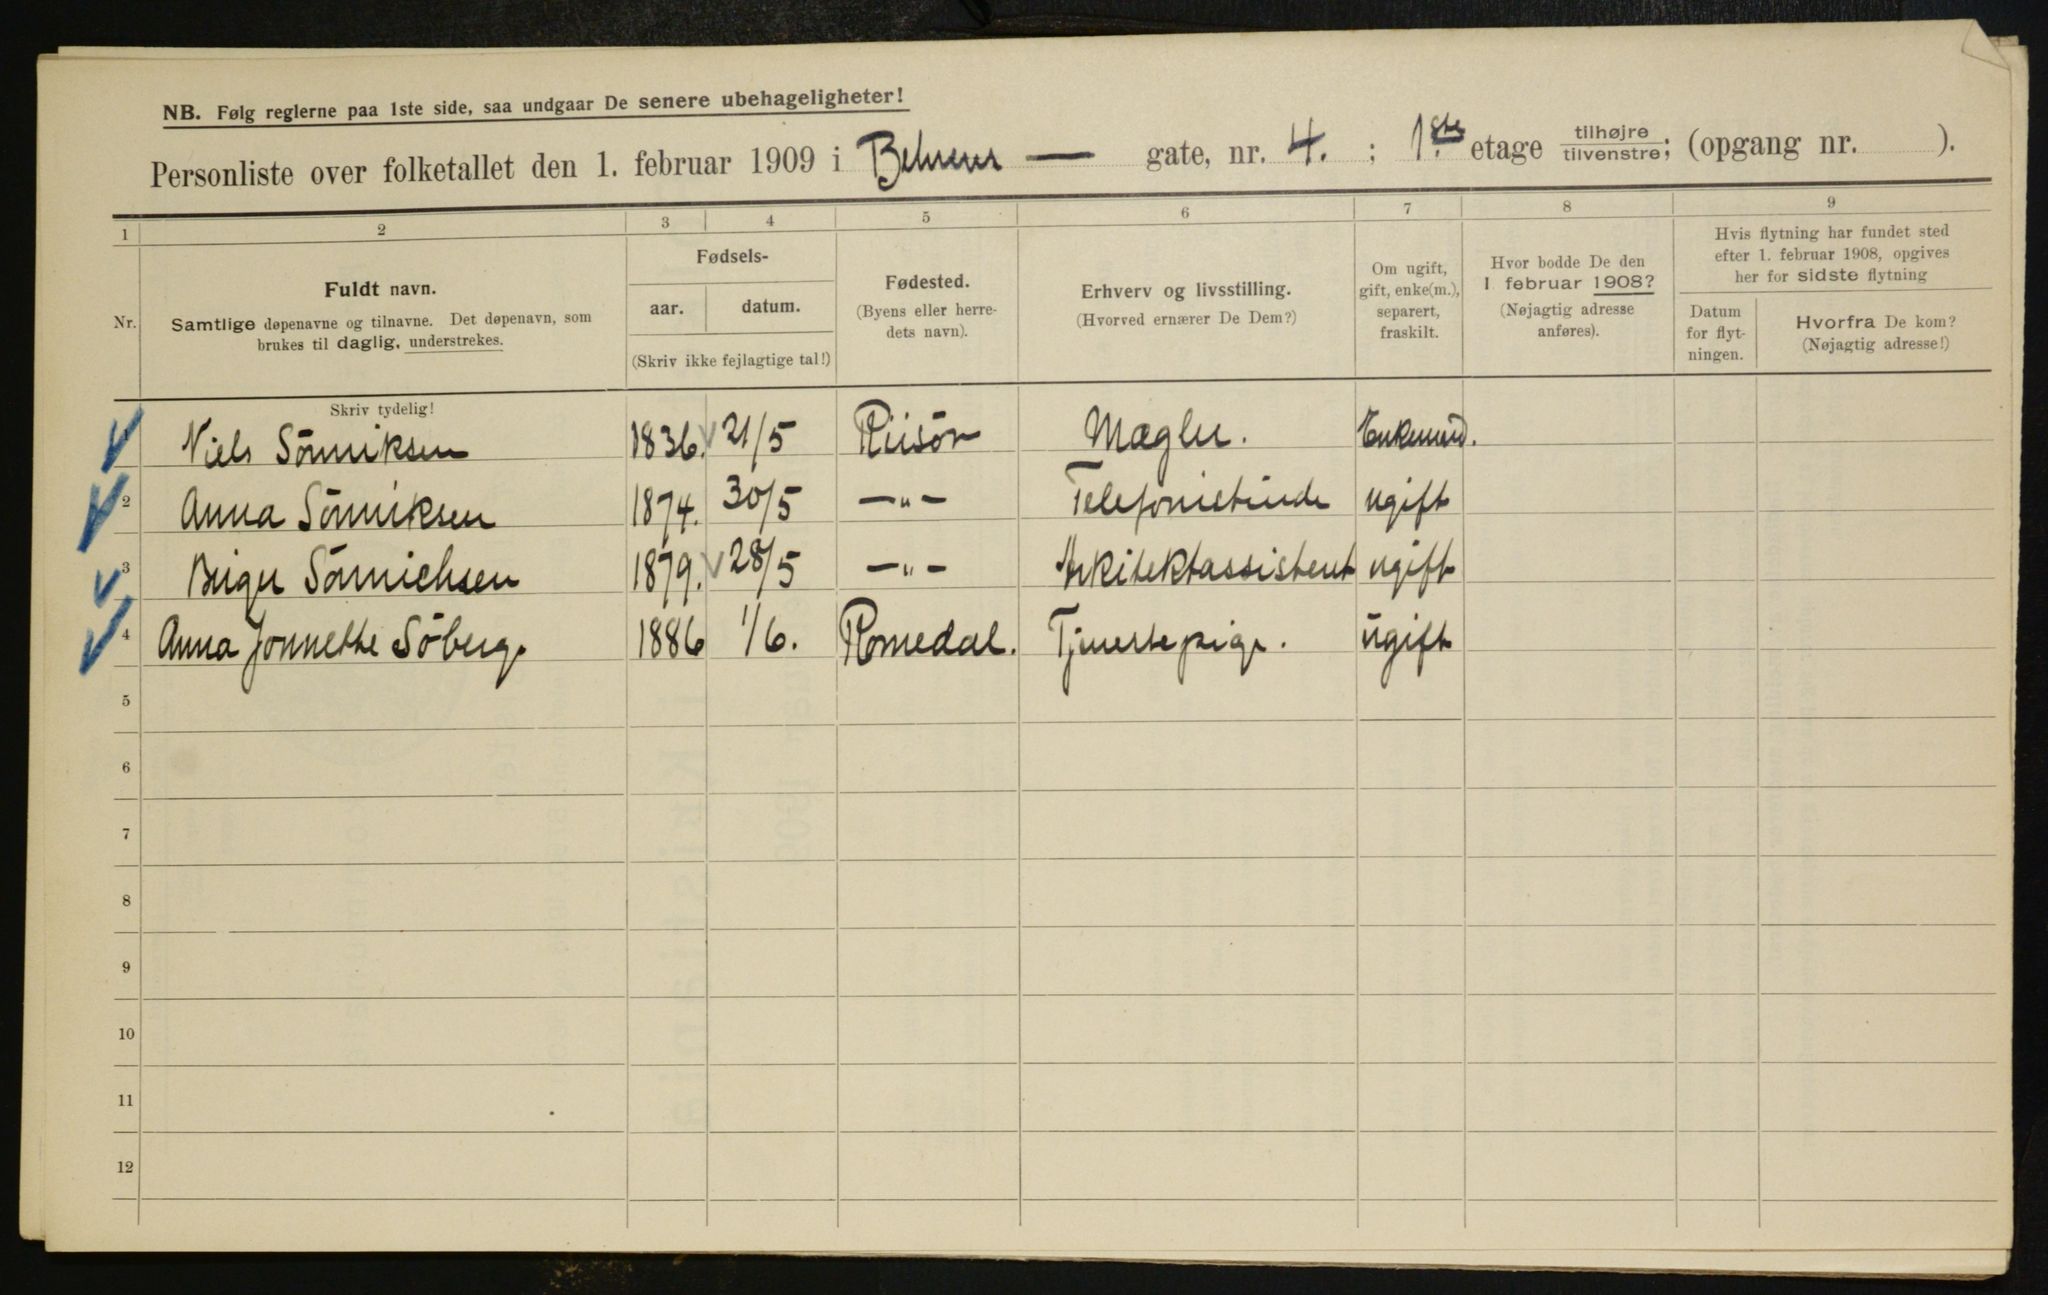 NB. Følg reglerne paa 1ste side, saa undgaar De senere ubehageligheter!
Personliste over folketallet den 1. februar 1909 i Behrens — gate, nr. 4. ; 1.ste etage tilhøjre/tilvenstre; (opgang nr. ).
1 2 3 4 5 6 7 8 9
Nr. Fuldt navn. Samtlige døpenavne og tilnavne. Det døpenavn, som brukes til daglig, understrekes.
Fødsels- aar. datum. (Skriv ikke fejlagtige tal!)
Fødested. (Byens eller herredets navn).
Erhverv og livsstilling. (Hvorved ernærer De Dem?)
Om ugift, gift, enke(m.), separert, fraskilt.
Hvor bodde De den 1 februar 1908? (Nøjagtig adresse anføres).
Hvis flytning har fundet sted efter 1. februar 1908, opgives her for sidste flytning
Datum for flytningen. Hvorfra De kom? (Nøjagtig adresse!)
Skriv tydelig!
Niels Sönniksen 1836. 21/5 Riisör Mægler. Enkemand.
2 Anna Sönniksen 1874. 30/5 —"— Telefonistinde ugift
3 Birger Sönnichsen 1879. 28/5 —"— Arkitektassistent ugift
4 Anna Jonnette Söberg. 1886 1/6. Romedal. Tjenestepige. ugift
5
6
7
8
9
10
11
12